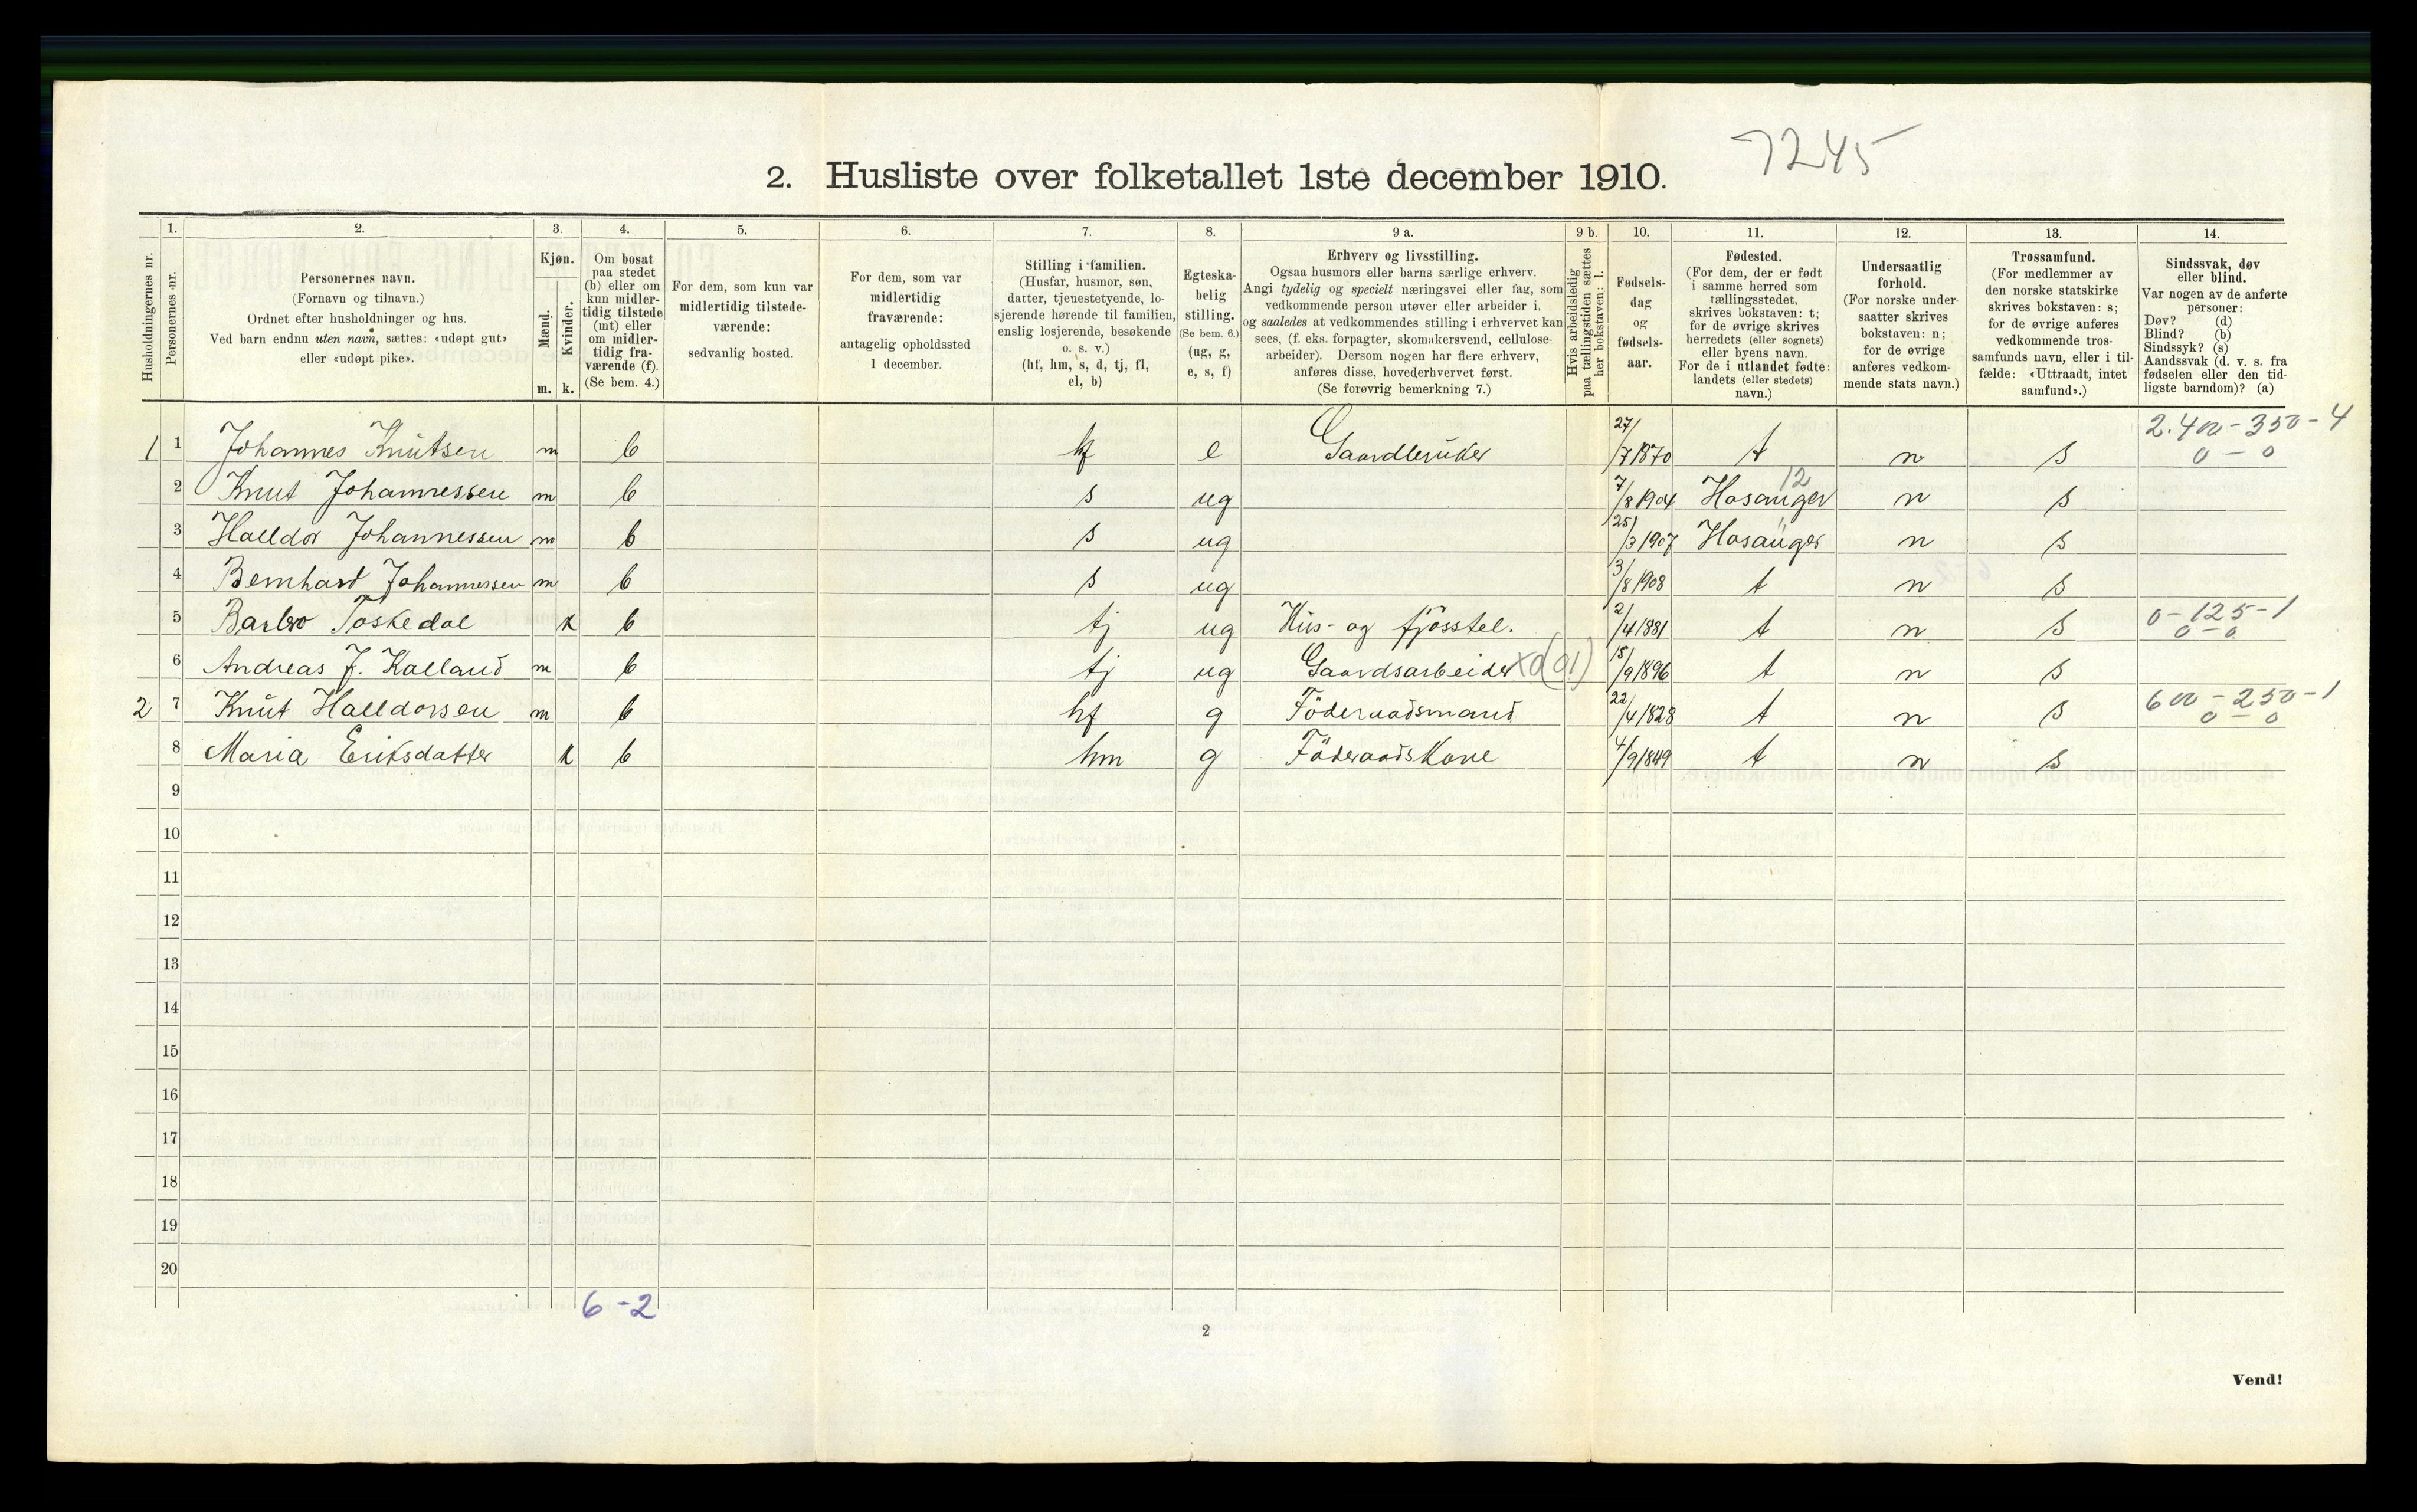 7245
2. Husliste over folketallet 1ste december 1910.
Husholdningernes nr.
1.
Personernes nr.
2.
Personernes navn.
(Fornavn og tilnavn.)
Ordnet efter husholdninger og hus.
Ved barn endnu uten navn, sættes: «udøpt gut»
eller «udøpt pike».
3.
Kjøn.
Mænd.
Kvinder.
m. k.
4.
Om bosat
paa stedet
(b) eller om
kun midler-
tidig tilstede
(mt) eller
om midler-
tidig fra-
værende (f).
(Se bem. 4.)
5.
For dem, som kun var
midlertidig tilstede-
værende:
sedvanlig bosted.
6.
For dem, som var
midlertidig
fraværende:
antagelig opholdssted
1 december.
7.
Stilling i familien.
(Husfar, husmor, søn,
datter, tjenestetyende, lo-
sjerende hørende til familien,
enslig losjerende, besøkende
o. s. v.)
(hf, hm, s, d, tj, fl,
el, b)
8.
Egteska-
belig
stilling.
(Se bem. 6.)
(ug, g,
e, s, f)
9 a.
Erhverv og livsstilling.
Ogsaa husmors eller barns særlige erhverv.
Angi tydelig og specielt næringsvei eller fag, som
vedkommende person utøver eller arbeider i,
og saaledes at vedkommendes stilling i erhvervet kan
sees, (f. eks. forpagter, skomakersvend, cellulose-
arbeider). Dersom nogen har flere erhverv,
anføres disse, hovederhvervet først.
(Se forøvrig bemerkning 7.)
9 b.
Hvis arbeidsledig
paa tællingstiden sættes
her bokstaven: l.
10.
Fødsels-
dag
og
fødsels-
aar.
11.
Fødested.
(For dem, der er født
i samme herred som
tællingsstedet,
skrives bokstaven: t;
for de øvrige skrives
herredets (eller sognets)
eller byens navn.
For de i utlandet fødte:
landets (eller stedets)
navn.)
12.
Undersaatlig
forhold.
(For norske under-
saatter skrives
bokstaven: n;
for de øvrige
anføres vedkom-
mende stats navn.)
13.
Trossamfund.
(For medlemmer av
den norske statskirke
skrives bokstaven: s;
for de øvrige anføres
vedkommende tros-
samfunds navn, eller i til-
fælde: «Uttraadt, intet
samfund».)
14.
Sindssvak, døv
eller blind.
Var nogen av de anførte
personer:
Døv? (d)
Blind? (b)
Sindssyk? (s)
Aandssvak (d. v. s. fra
fødselen eller den tid-
ligste barndom)? (a)
1 1 Johannes Knutsen m b hf e Gaardbruker 27/7 1870 t n s 2.400-350-4
0-0
2 Knut Johannessen m b s ug 7/8 1904 Hosanger 12 n s
3 Halldor Johannessen m b s ug 25/3 1907 Hosanger " n s
4 Bernhard Johannessen m b s ug 3/8 1908 t n s
5 Barbro Toskedal k b tj ug Hus- og fjösstel. 2/4 1881 t n s 0-125-1
0-0
6 Andreas J. Kalland m b tj ug Gaardsarbeider X0(01) 15/9 1896 t n s
2 7 Knut Halldorsen m b hf g Föderaadsmand 22/4 1828 t n s 600-250-1
0-0
8 Maria Eriksdatter k b hm g Föderaadskone 4/9 1849 t n s
9
10
11
12
13
14
15
16
17
18
19
20
6-2
2
Vend!